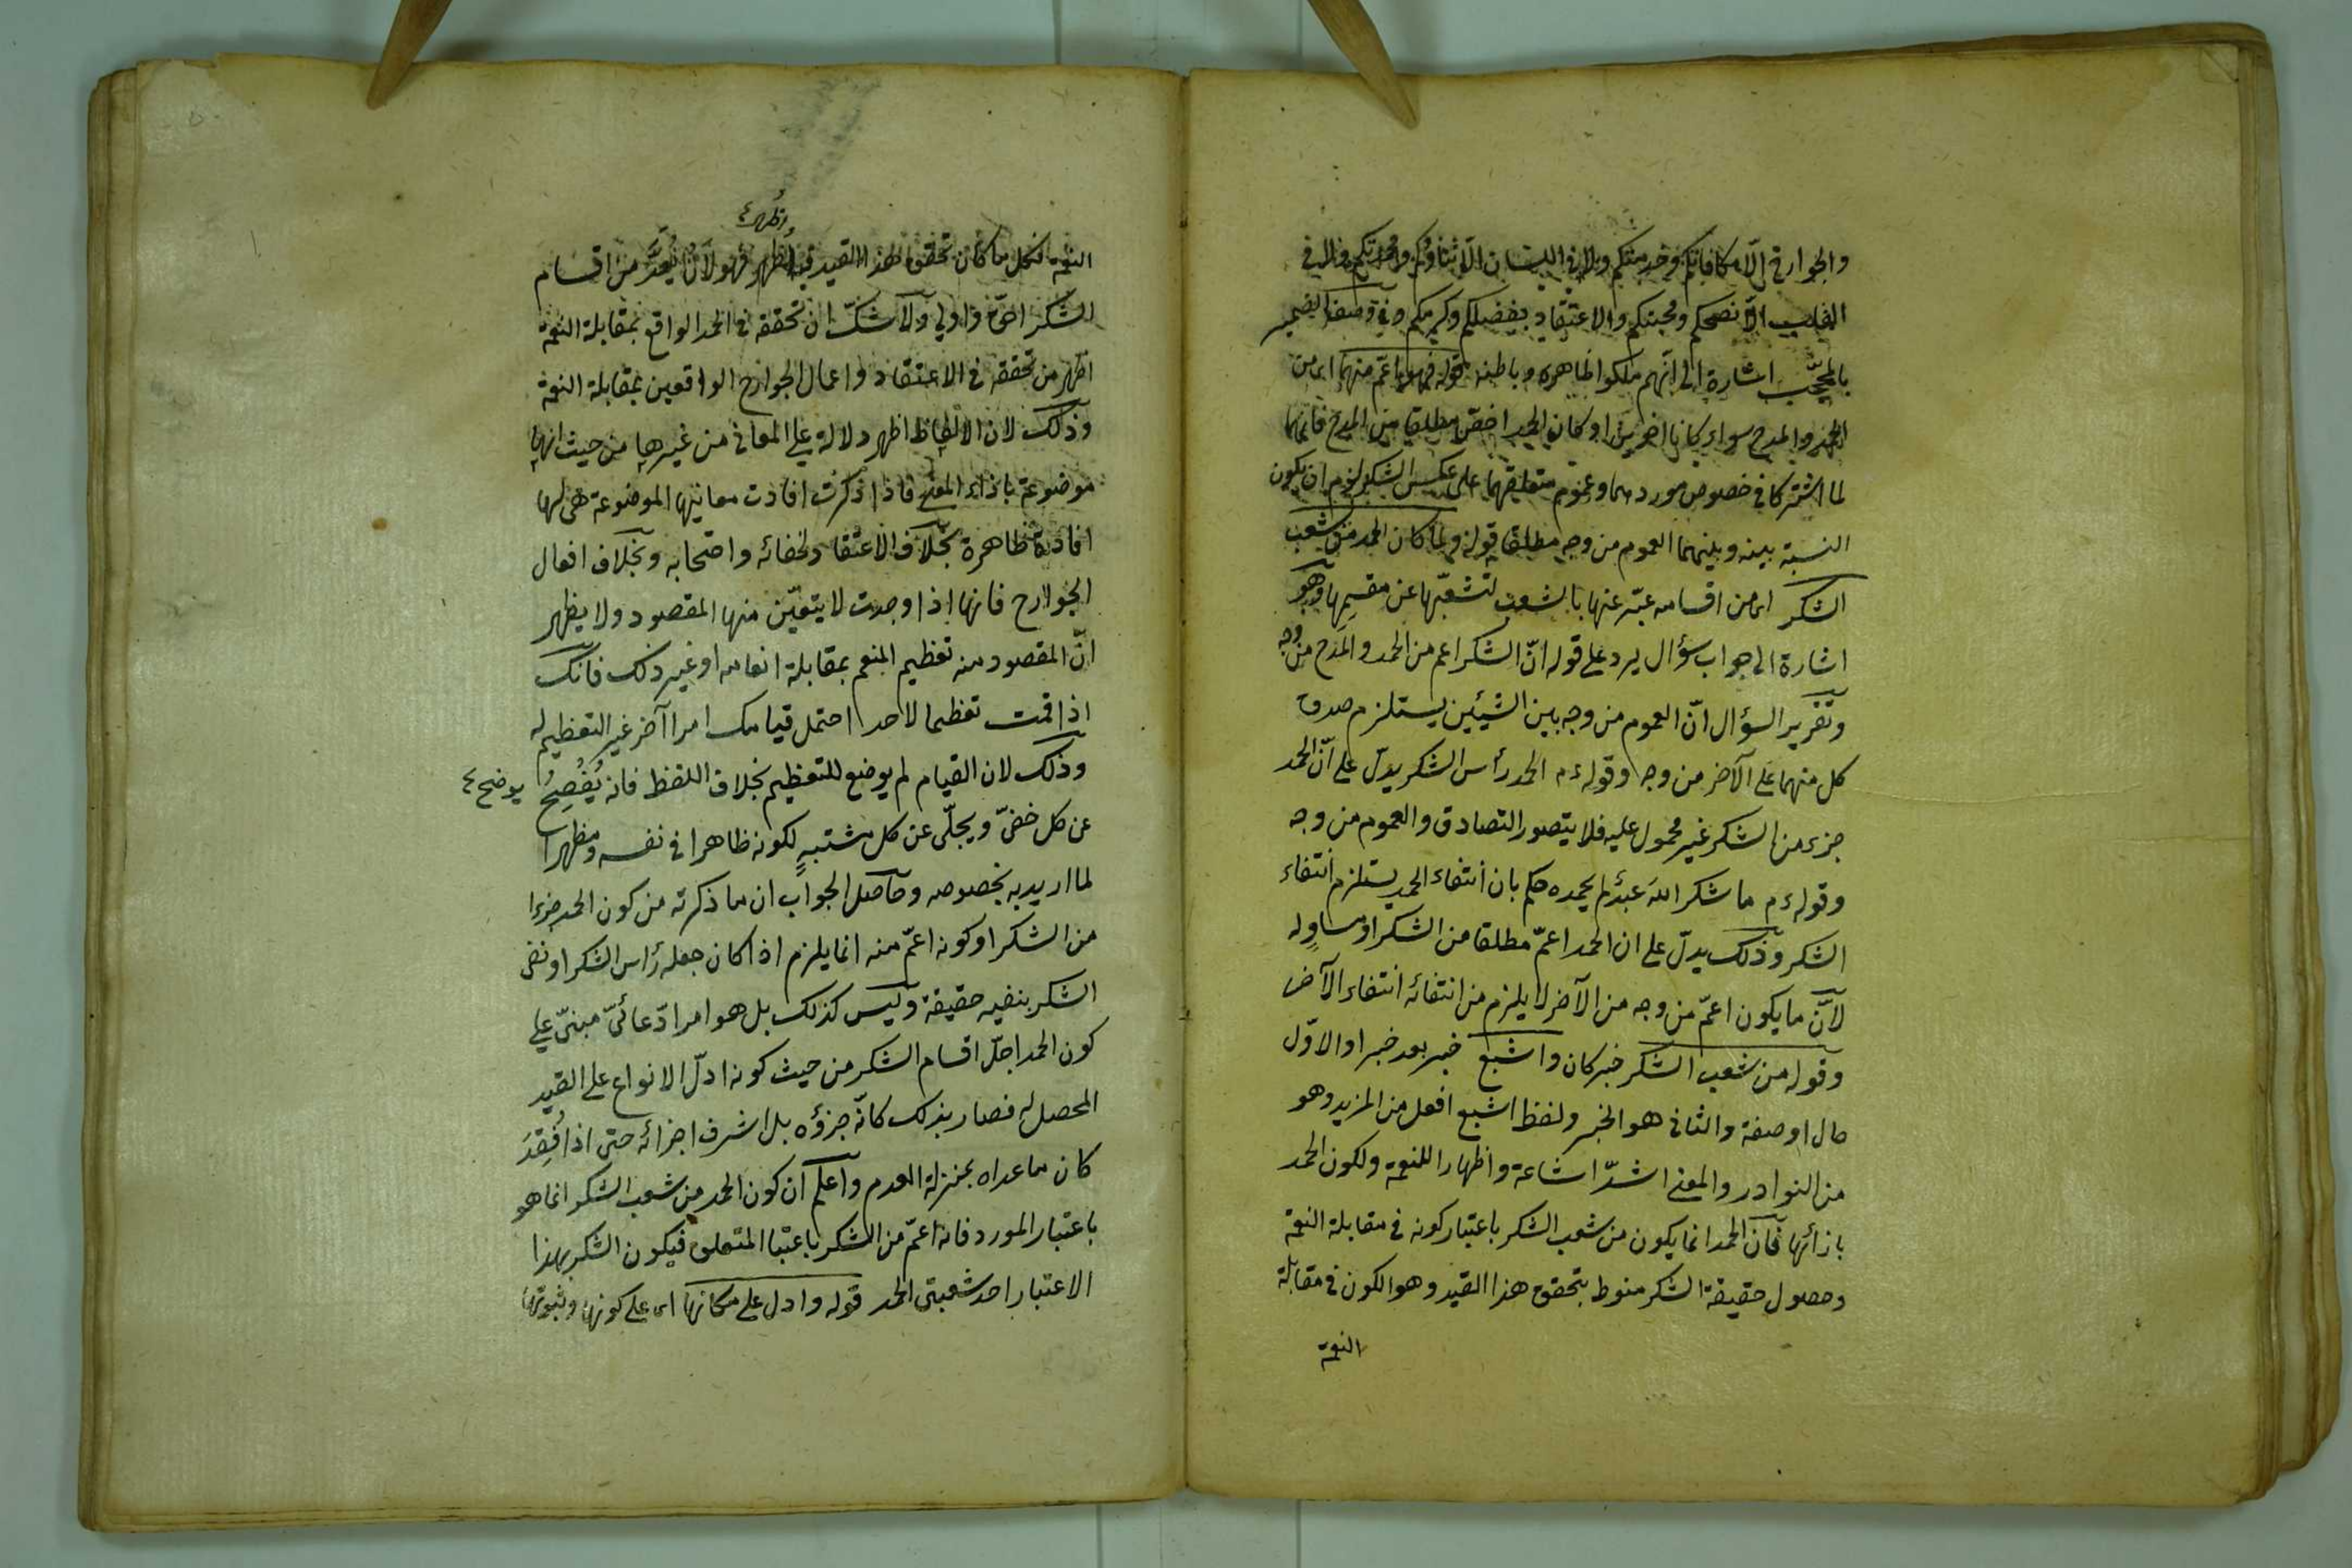 والجوارح الا مكافاتكم وخدمتكم ولا في اللسان الا ثناؤكم ومحمدتكم ولا في
القلب الا نصحكم ومحبتكم والاعتقاد بفضلكم وكريمكم وفي وصف الضمير
بالمحجّب اشارة الى انهم ملكوا ظاهره وباطنه قوله فهو اعمّ منهما اى من
الحمد والمدح سواء كانا اخوين او كان الحمد اخصّ مطلقا من المدح فانهما
لما اشتركا في خصوص موردهما وعموم متعلقهما على عكس الشكر لزم ان يكون
النسبة بينه وبينهما العموم من وجه مطلقا قوله ولما كان الحمد من شعب
الشكر اى من اقسامه عبّر عنها بالشعب لتشعّبها عن مقسمها وهو
اشارة الى جواب سؤال يرد على قوله انّ الشكر اعم من الحمد والمدح من وجه
وتقرير السؤال انّ العموم من وجه بين الشيئين يستلزم صدق
كل منهما على الآخر من وجه وقوله ءم الحمد رأس الشكر يدلّ على انّ الحمد
جزء من الشكر غير محمول عليه فلا يتصور التصادق والعموم من وجه
وقوله ءم ما شكر اللهَ عبدٌ لم يحمده حكم بان انتفاء الحمد يستلزم انتفاء
الشكر وذلك يدلّ على ان الحمد اعمّ مطلقا من الشكر او مساوٍ له
لانّ ما يكون اعمّ من وجه من الآخر لا يلزم من انتفائه انتفاء الآخر
وقوله من شعب الشكر خبر كان واشيع خبر بعد خبر او الاوّل
حال او صفة والثانى هو الخبر ولفظ اشيع افعل من المزيد وهو
من النوادر والمعنى اشدّ اشاعة واظهارا للنعمة ولكون الحمد
بازائها فان الحمد انما يكون من شعب الشكر باعتبار كونه في مقابلة النعمة
وحصول حقيقة الشكر منوط بتحقق هذا القيد وهو الكون في مقابلة
النعمة
واظهر ٤
النعمة فكل ما كان تحقق هذا القيد فيه اظهر فهو لان يُعَدَّ من اقسام
الشكر احقّ واولى ولا شكّ ان تحققه في الحمد الواقع بمقابلة النعمة
اظهر من تحققه في الاعتقاد واعمال الجوارح الواقعين بمقابلة النعمة
وذلك لان الالفاظ اظهر دلالة على المعانى من غيرها من حيث انها
موضوعة بازاء المعنى فاذا ذكرت افادت معانيها الموضوعة هى لها
افادة ظاهرة بخلاف الاعتقاد لخفائه واحتجابه وبخلاف افعال
الجوارح فانها اذا وجدت لا يتعيّن منها المقصود ولا يظهر
انّ المقصود منه تعظيم المنعم بمقابلة انعامه او غير ذلك فانك
اذا قمت تعظيما لاحد احتمل قيامك امرا آخر غير التعظيم له
وذلك لان القيام لم يوضع للتعظيم بخلاف اللفظ فانه يُفْصِحُ
يوضح ٤
عن كل خفىّ ويجلّى عن كل مشتبهٍ لكونه ظاهرا في نفسه ومظهرا
لما اريد به بخصوصه وحاصل الجواب ان ما ذكرته من كون الحمد جزءا
من الشكر او كونه اعمّ منه انما يلزم اذا كان جعله رأس الشكر او نفى
الشكر بنفيه حقيقة وليس كذلك بل هو امر ادّعائىّ مبنىّ على
كون الحمد اجلّ اقسام الشكر من حيث كونه ادلّ الانواع على القيد
المحصل له فصار بذلك كانّه جزؤه بل اشرف اجزائه حتى اذا فُقِدَ
كان ما عداه بمنزلة العدم واعلم ان كون الحمد من شعب الشكر انما هو
باعتبار المورد فانه اعمّ من الشكر باعتبا المتعلق فيكون الشكر بهذا
الاعتبار احد شعبتى الحمد قوله وادل على مكانها اى على كونها وثبوتها